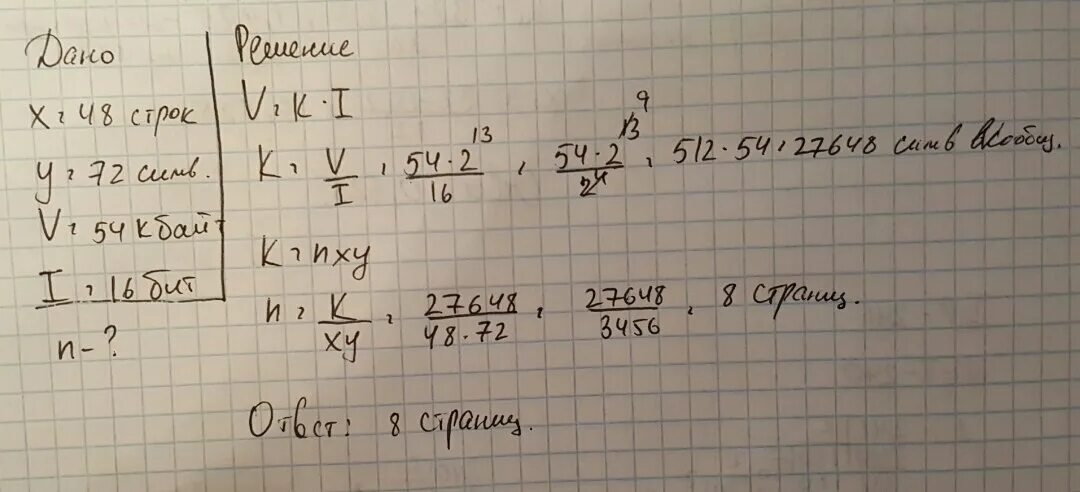 Дано
x = 48 строк
y = 72 симв.
V = 54 Кбайт
I = 16 бит
n - ?
Решение
V = K · I
K = V/I = 54 · 2^13 / 16 = 54 · 2^13 9 / 2^4 = 512 · 54 = 27648 симв в сообщ.
K = nxy
n = K/xy = 27648 / 48 · 72 = 27648 / 3456 = 8 страниц.
Ответ: 8 страниц.